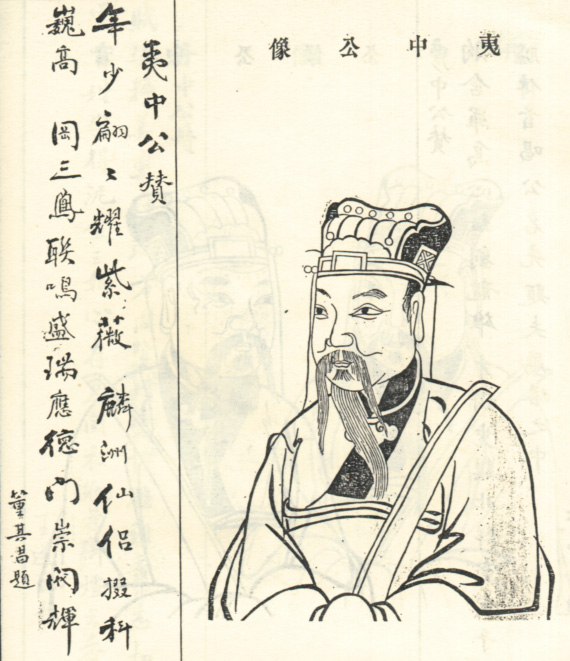 夷中公像
夷中公賛
年少翩々耀紫薇 麟洲仙侶掇科
巍高 岡三鳳聯鳴盛瑞應德門崇閥輝
董其昌題